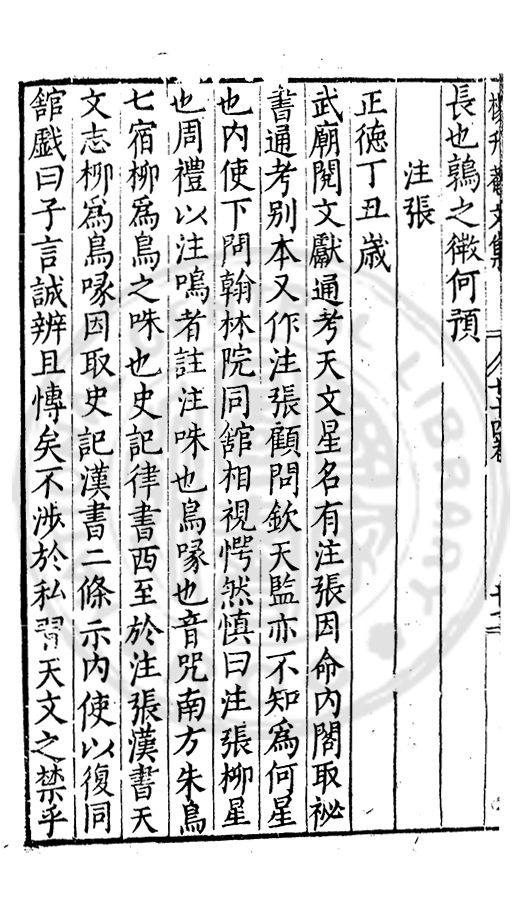 長也鶉之徵何預
注張
正德丁丑歲
武廟閱文獻通考天文星名有注張因命內閣取祕
書通考別本又作注張顧問欽天監亦不知為何星
也內使下問翰林院同舘相視愕然慎曰注張柳星
也周禮以注鳴者註注咮也鳥喙也音咒南方朱鳥
七宿柳為鳥之咮也史記律書西至於注張漢書天
文志柳為鳥喙因取史記漢書二條示內使以復同
舘戲曰子言誠辨且博矣不涉於私習天文之禁乎